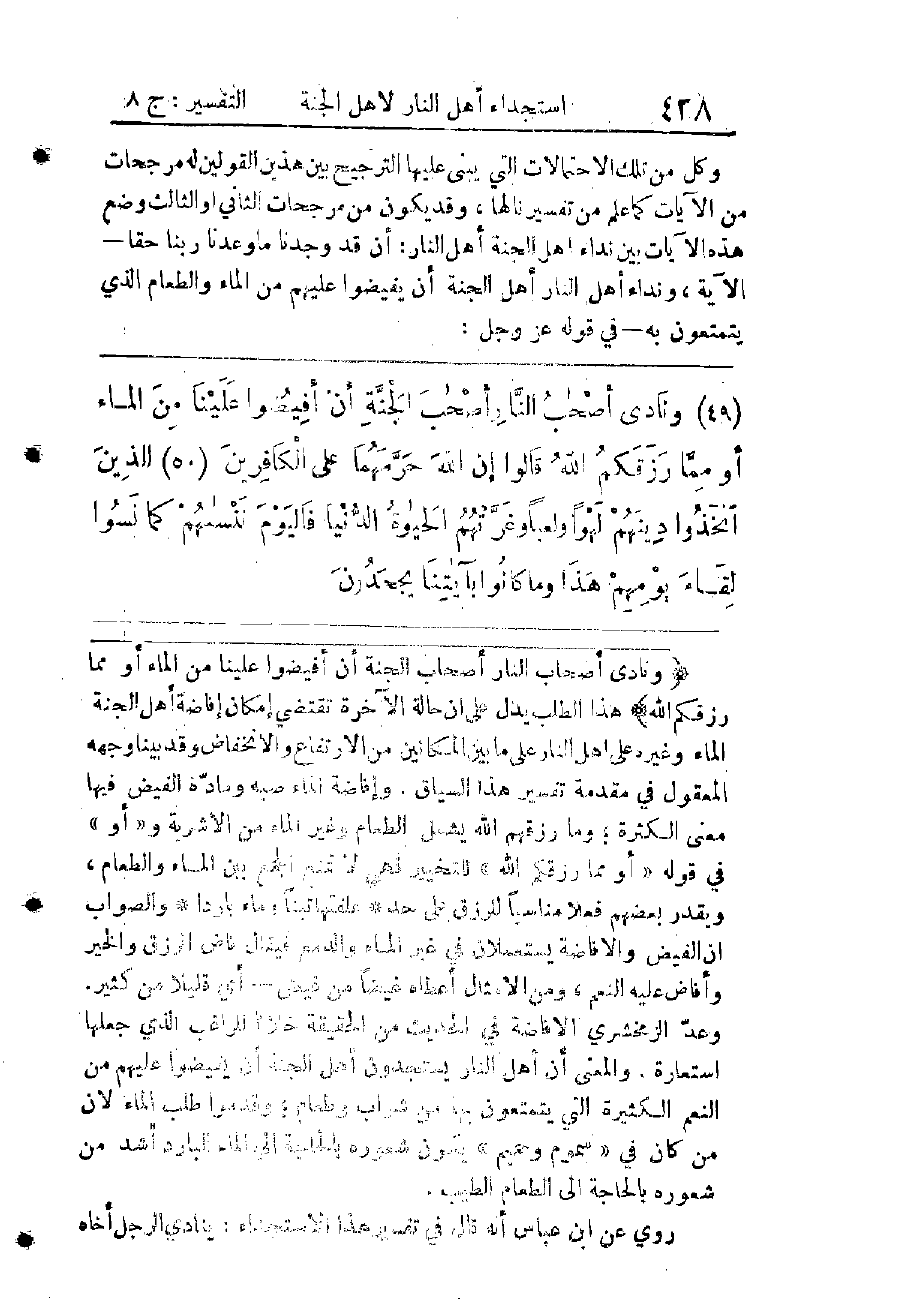 ٤٣٨ استجداء أهل النار لاهل الجنة التفسير : ج ٨
وكل من تلك الاحتمالات التي يبنى عليها الترجيح بين هذين القولين له مرجحات
من الآيات كما علم من تفسيرنا لها ، وقد يكون من مرجحات الثاني او الثالث وضع
هذه الآيات بين نداء اهل الجنة أهل النار : أن قد وجدنا ما وعدنا ربنا حقا —
الآية ، ونداء أهل النار أهل الجنة أن يفيضوا عليهم من الماء والطعام الذي
يتمتعون به — في قوله عز وجل :
(٤٩) وَنادى أَصْحٰبُ النَّارِ أَصْحٰبَ الْجَنَّةِ أَنْ أَفِيضُوا عَلَيْنَا مِنَ المـاء
أو مِمَّا رَزَقَكمُ اللهُ قَالوا إن اللهَ حَرَّمَهُمَا على الْكَافِرِينَ (٥٠) الذينَ
اتَّخَذُوا دِينَهُمْ لَهْواً ولعباً وغَرَّتْهُمُ الحيٰوةُ الدُّنْيا فَاليَوْمَ نَنْسٰهُمْ كما نَسُوا
لِقَـاءَ يوْمِهِمْ هٰذَا وما كانُوا بآيٰتِنَا يجحَدُونَ
﴿ ونادى أصحاب النار أصحاب الجنة أن أفيضوا علينا من الماء أو مما
رزقكم الله ﴾ هذا الطلب يدل على ان حالة الآخرة تقتضي إمكان إفاضة أهل الجنة
الماء وغيره على اهل النار على ما بين المكانين من الارتفاع والانخفاض وقد بينا وجهه
المعقول في مقدمة تفسير هذا السياق . وإفاضة الماء صبه ومادّة الفيض فيها
معنى الكثرة ؛ وما رزقهم الله يشمل الطعام وغير الماء من الأشربة و« أو »
في قوله « أو مما رزقكم الله » للتخيير فهي لا تمنع الجمع بين المـاء والطعام ،
ويقدر بعضهم فعلا مناسباً للرزق على حد * علفتها تبناً وماء باردا * والصواب
ان الفيض والافاضة يستعملان في غير المـاء والدمع فيقال فاض الرزق والخير
وأفاض عليه النعم ، ومن الامثال أعطاه غيضاً من فيض — أي قليلا من كثير.
وعدّ الزمخشري الافاضة في الحديث من الحقيقة خلافا للراغب الذي جعلها
استعارة . والمعنى أن أهل النار يستجدون أهل الجنة أن يفيضوا عليهم من
النعم الكثيرة التي يتمتعون بها من شراب وطعام ؛ وقدموا طلب الماء لان
من كان في « سموم وحميم » يكون شعوره بالحاجة الى الماء البارد أشد من
شعوره بالحاجة الى الطعام الطيب .
روي عن ابن عباس أنه قال في تفسير هذا الاستجداء : ينادي الرجل أخاه